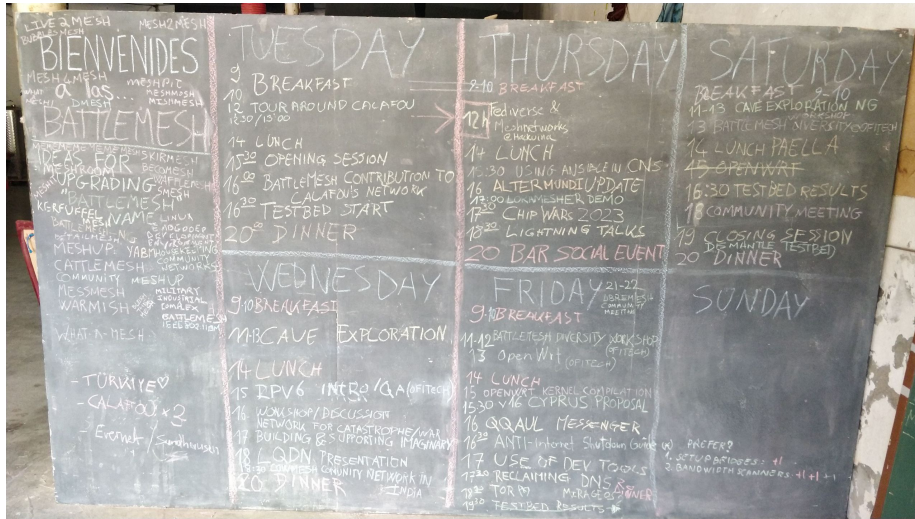 LIVE2MESH MESH2MESH
BUBBLESMESH
BIENVENIDES
MESH4MESH MESHPIT
a las...
MESHMOSH
DMESH MESHMESH
BATTLEMESH
SKIRMESH
IDEAS FOR
MESHROOM BECOMESH
UPGRADING
SMESH
BATTLEMESH
KERFUFFEL NAME LINUX
BATTLEMESH
MESHUP
COMMUNITY
CATTLEMESH NETWORKS
COMMUNITY MESHUP
MESSMESH MILITARY
INDUSTRIAL
WARMISH COMPLEX
BATTLEMESH
WHAT-A-MESH
- TÜRKIYE ♡
- CALAFOU × 2
TUESDAY
9 BREAKFAST
10
12 TOUR AROUND CALAFOU
12:30/13:00
14 LUNCH
15:30 OPENING SESSION
16:00 BATTLEMESH CONTRIBUTION TO
CALAFOU'S NETWORK
16:30 TESTBED START
20:00 DINNER
WEDNESDAY
9-10 BREAKFAST
11-13 CAVE EXPLORATION
14 LUNCH
15 IPV6 INTRO/QA (OFITECH)
16 WORKSHOP/DISCUSSION
NETWORK FOR CATASTROPHE/WAR
17 BUILDING & SUPPORTING IMAGINARY
18 LQDN PRESENTATION
COMUNITY NETWORK IN
INDIA
20 DINNER
THURSDAY
9-10 BREAKFAST
12h Fediverse &
Meshnetworks
@hakuina
14 LUNCH
15:30 USING ANSIBLE IN CNS
16 ALTERMUNDI UPDATE
17:00 DEMO
17:30 CHIP WARS 2023
18:30 LIGHTNING TALKS
20 BAR SOCIAL EVENT
FRIDAY 21-22
LIBREMESH
COMMUNITY
MEETING
9-10 BREAKFAST
11-12 BATTLEMESH DIVERSITY WORKSHOP
(OFITECH)
13 OpenWrt (OFITECH)
14 LUNCH
15 OPENWRT KERNEL COMPILATION
15:30 V16 CYPRUS PROPOSAL
16 QAUL MESSENGER
16:30 ANTI-Internet Shutdown Guide
17 USE OF DEV TOOLS
17:30 RECLAIMING DNS
TOR DINNER
19:30 TESTBED RESULTS
SATURDAY
BREAKFAST 9-10
11-13 CAVE EXPLORATION NG
13 BATTLEMESH DIVERSITY @OFITECH
14 LUNCH PAELLA
15 OPENWRT
16:30 TESTBED RESULTS
18 COMMUNITY MEETING
19 CLOSING SESSION
DISMANTLE TESTBED
20 DINNER
SUNDAY
... PREFER?
1. SETUP BRIDGES: +1
2. BANDWIDTH SCANNERS: +1 +1 +1